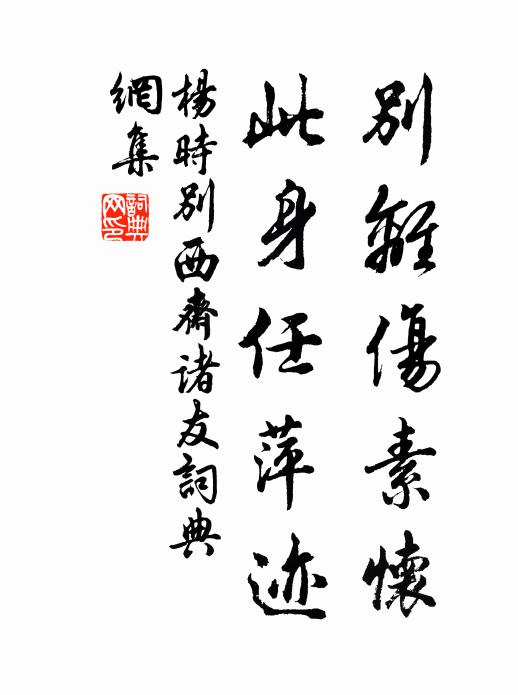 别離傷素懷
此身任萍迹
楊時别西齋諸友詞典
網集
詞典
网印